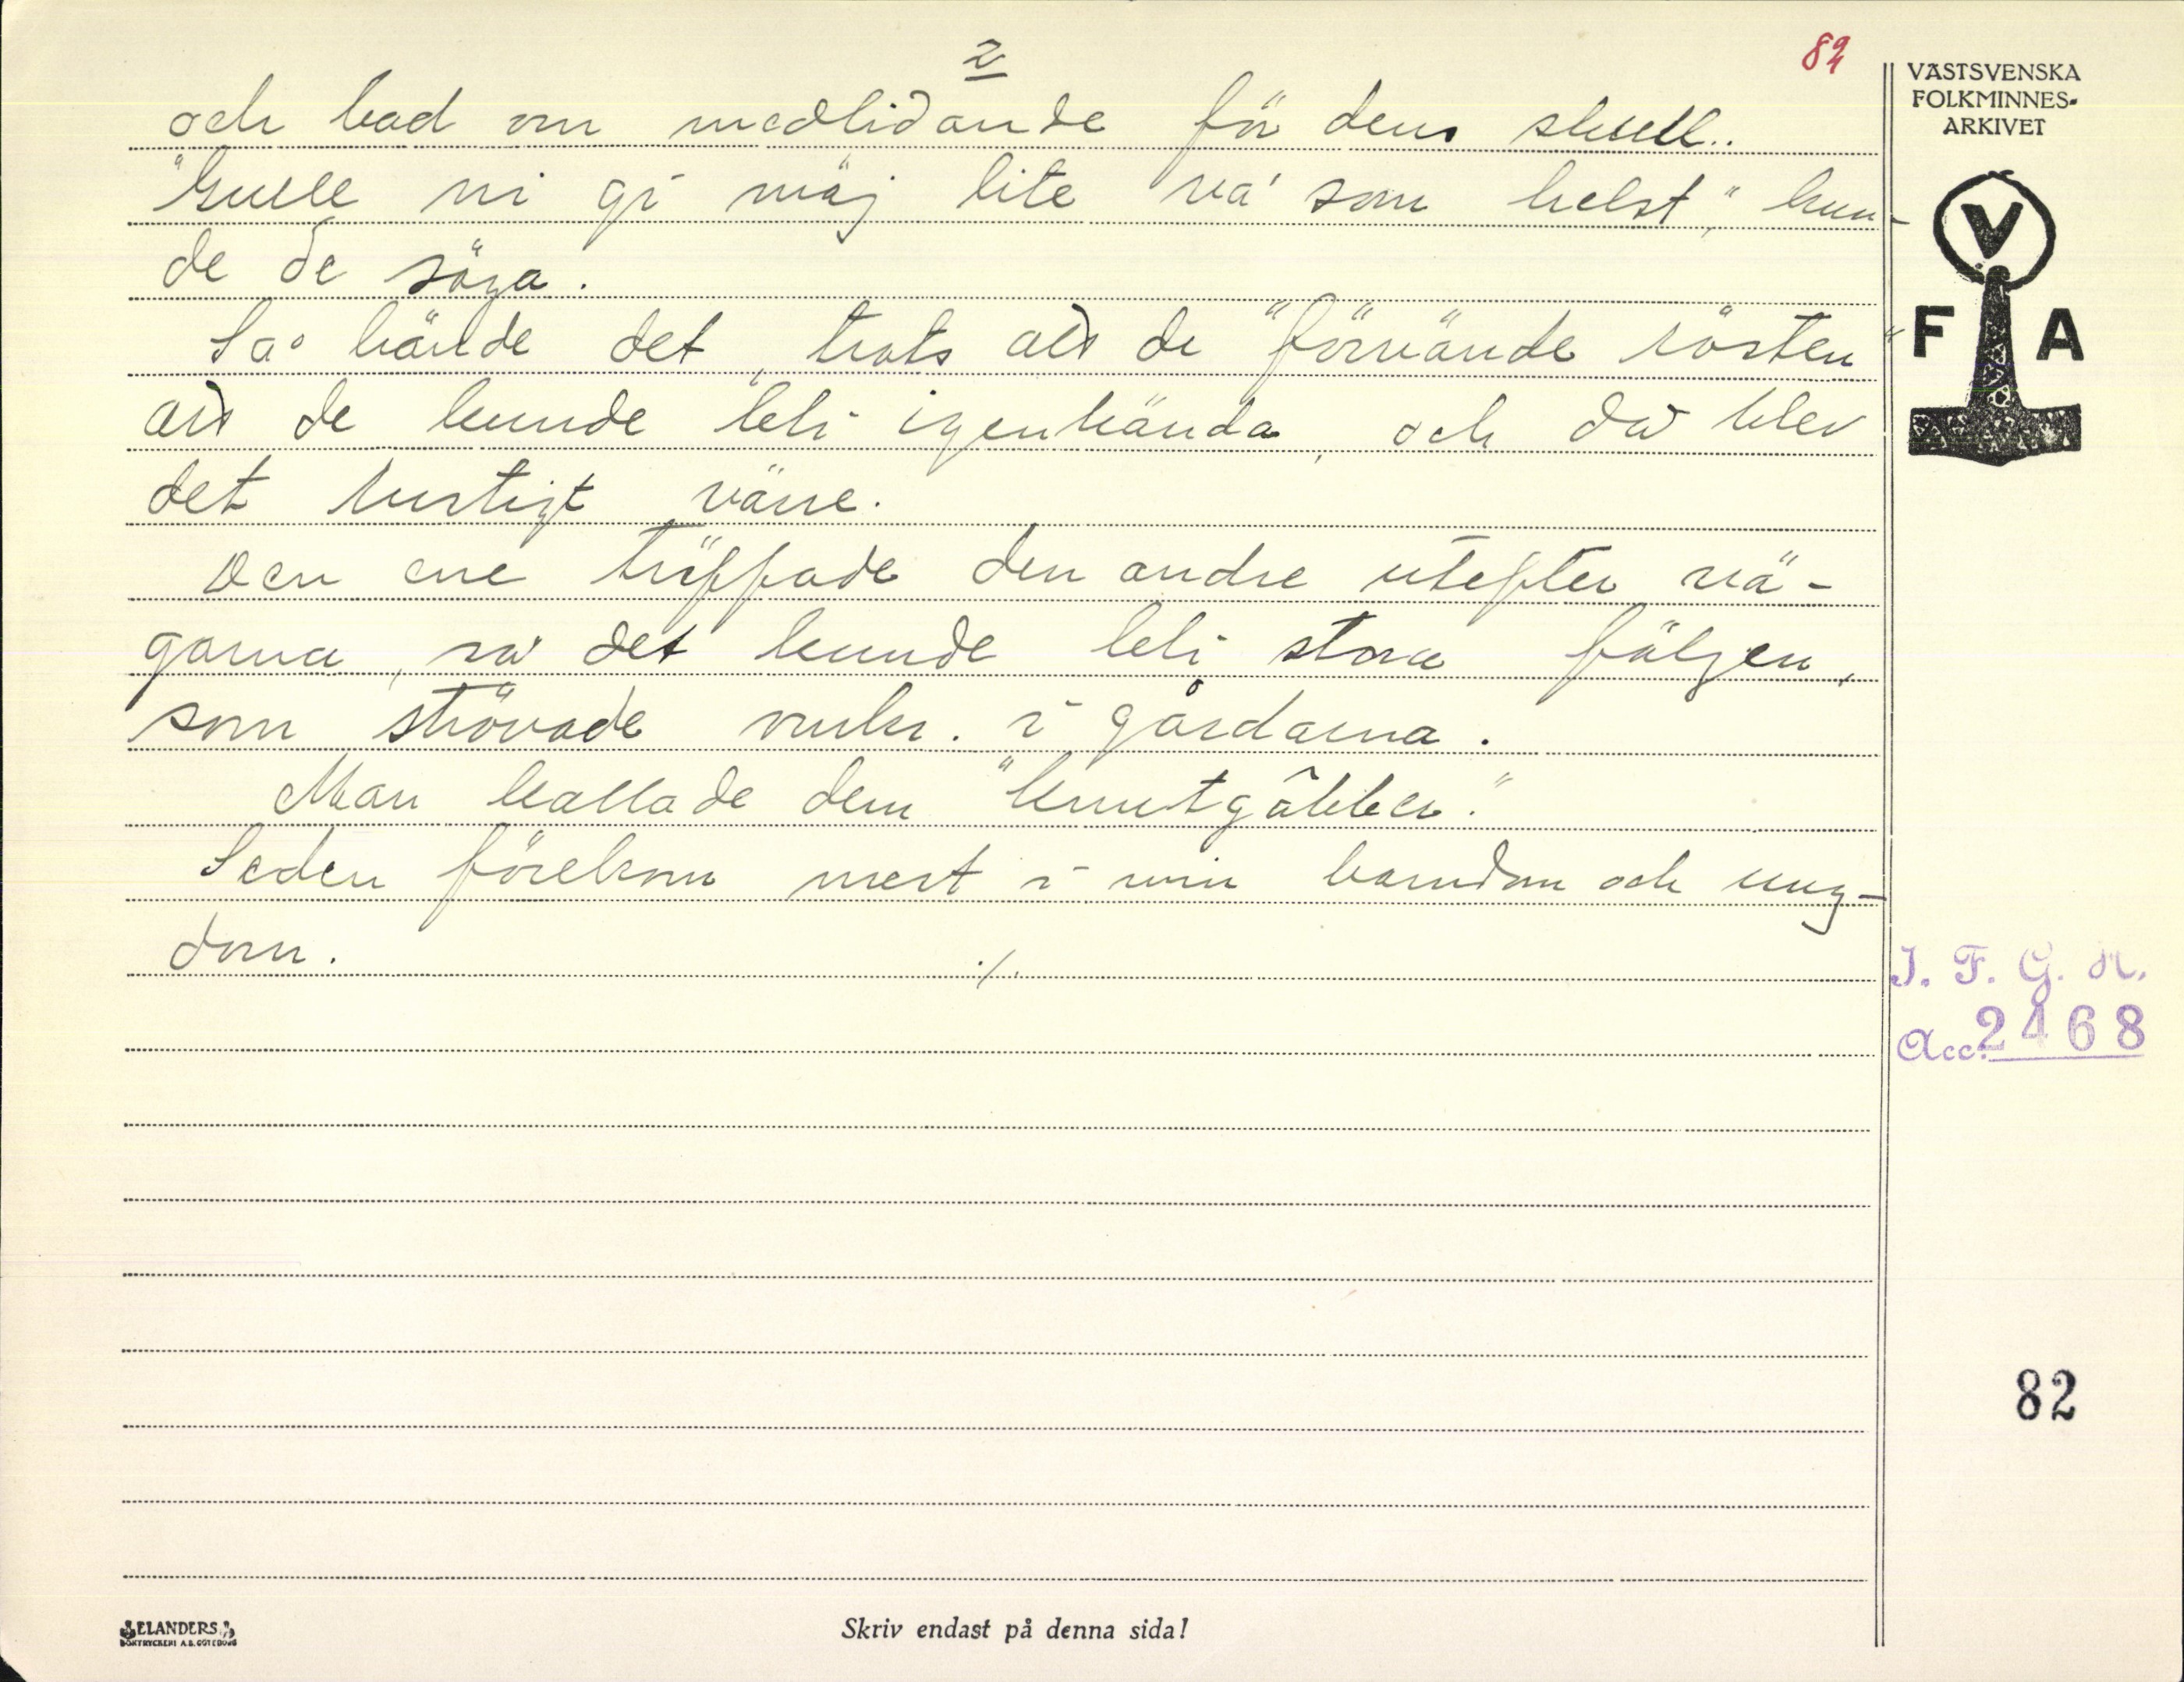 2
82
och bad om medlidande för dens skull..
"Gulle ni gi mäj lite va' som helst," kun-
de de säga.
Så hände det, trots att de "förvände rösten"
att de kunde bli igenkända, och då blev
det lustigt värre.
Den ene träffade den andre utefter vä-
garna, så det kunde bli stora följen,
som strövade omkr. i gårdarna.
Man kallade dem "knutgubber."
Seden förekom mest i min barndom och ung-
dom. ./.
VÄSTSVENSKA
FOLKMINNES-
ARKIVET
V
F A
I. F. G. H.
Acc. 2468
82
ELANDERS
BOKTRYCKERI A.B. GÖTEBORG
Skriv endast på denna sida!